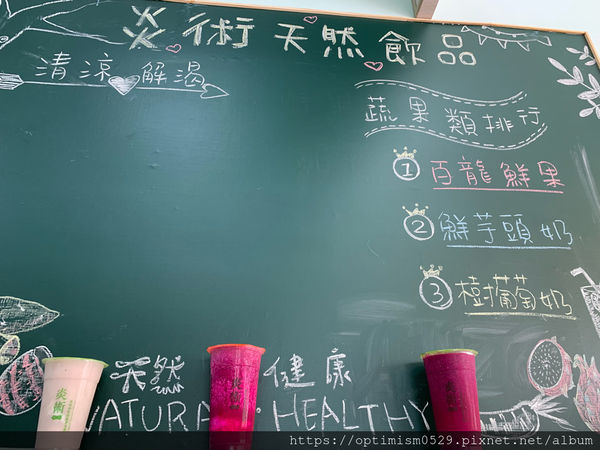 炎術天然飲品
清涼解渴
蔬果類排行
① 百龍鮮果
② 鮮芋頭奶
③ 樹葡萄奶
天然 健康
NATURAL HEALTHY
炎術
炎術
https://optimism0529.pixnet.net/album